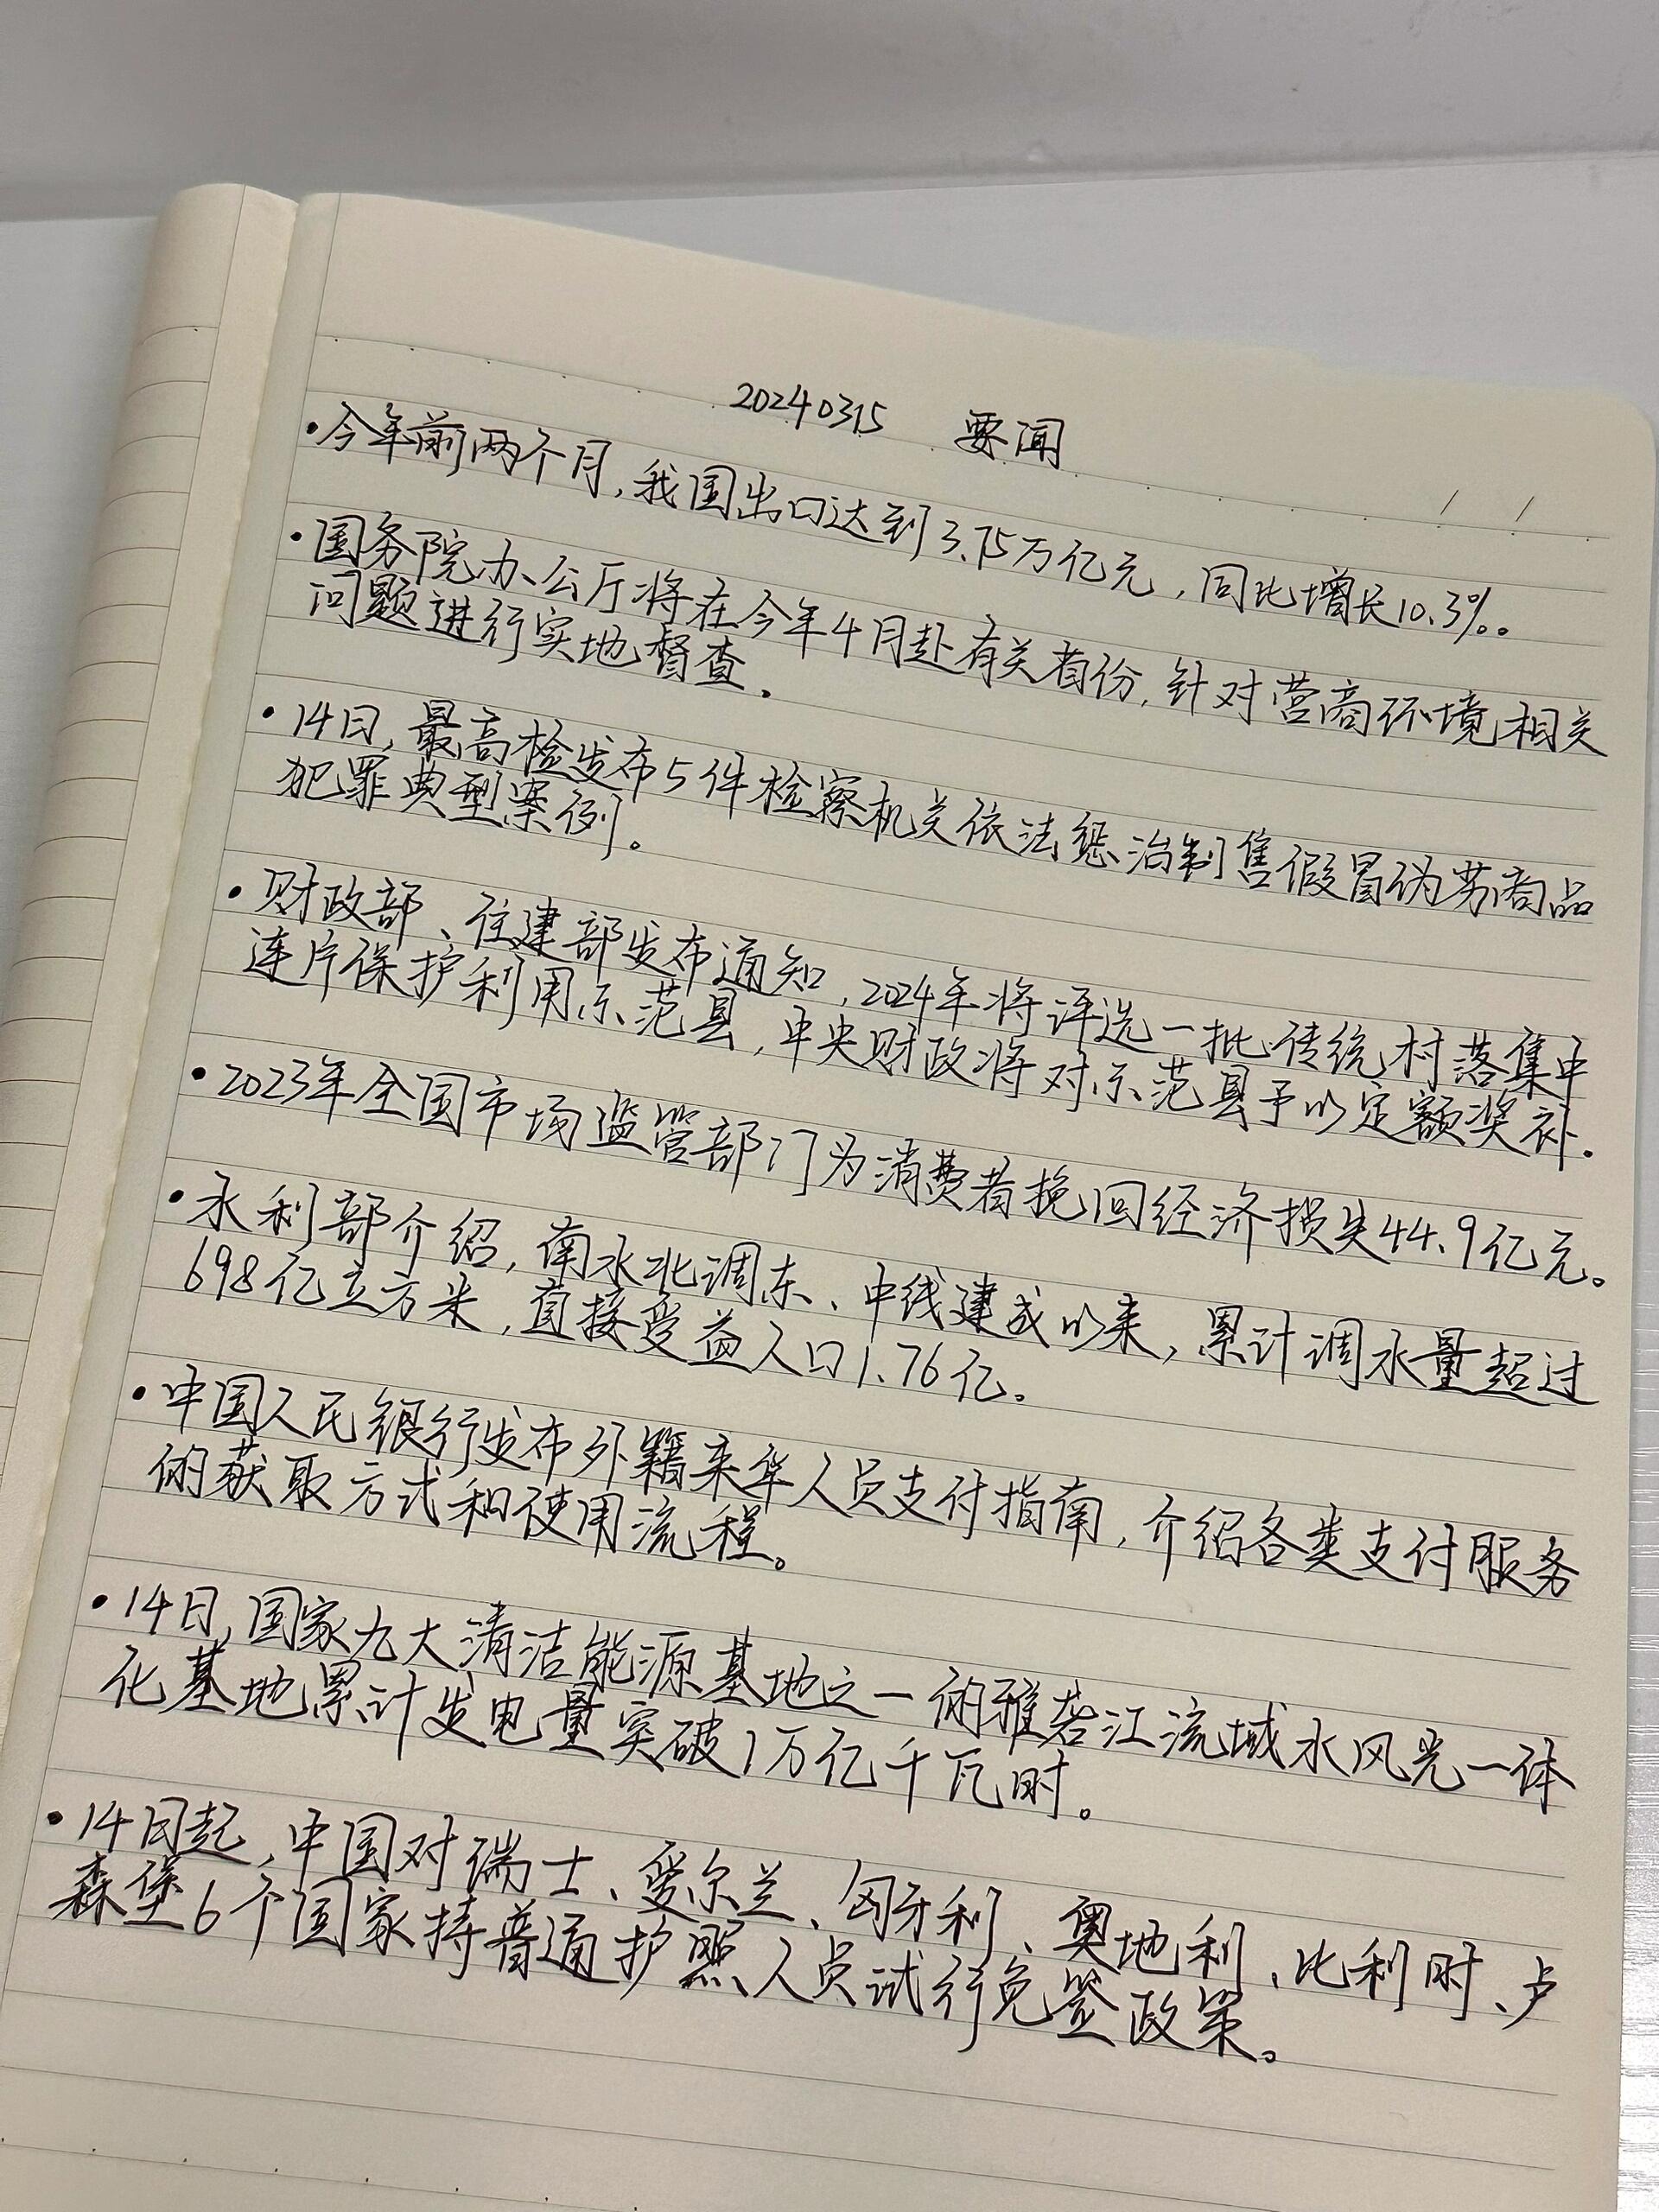 20240315 要闻
/ /
·今年前两个月,我国出口达到3.75万亿元,同比增长10.3%。
·国务院办公厅将在今年4月赴有关省份,针对营商环境相关
问题进行实地督查.
·14日,最高检发布5件检察机关依法惩治制售假冒伪劣商品
犯罪典型案例。
·财政部、住建部发布通知,2024年将评选一批传统村落集中
连片保护利用示范县,中央财政将对示范县予以定额奖补.
·2023年全国市场监管部门为消费者挽回经济损失44.9亿元。
·水利部介绍,南水北调东、中线建成以来,累计调水量超过
698亿立方米,直接受益人口1.76亿。
·中国人民银行发布外籍来华人员支付指南,介绍各类支付服务
的获取方式和使用流程。
·14日,国家九大清洁能源基地之一的雅砻江流域水风光一体
化基地累计发电量突破1万亿千瓦时。
·14日起,中国对瑞士、爱尔兰、匈牙利、奥地利、比利时、卢
森堡6个国家持普通护照人员试行免签政策。